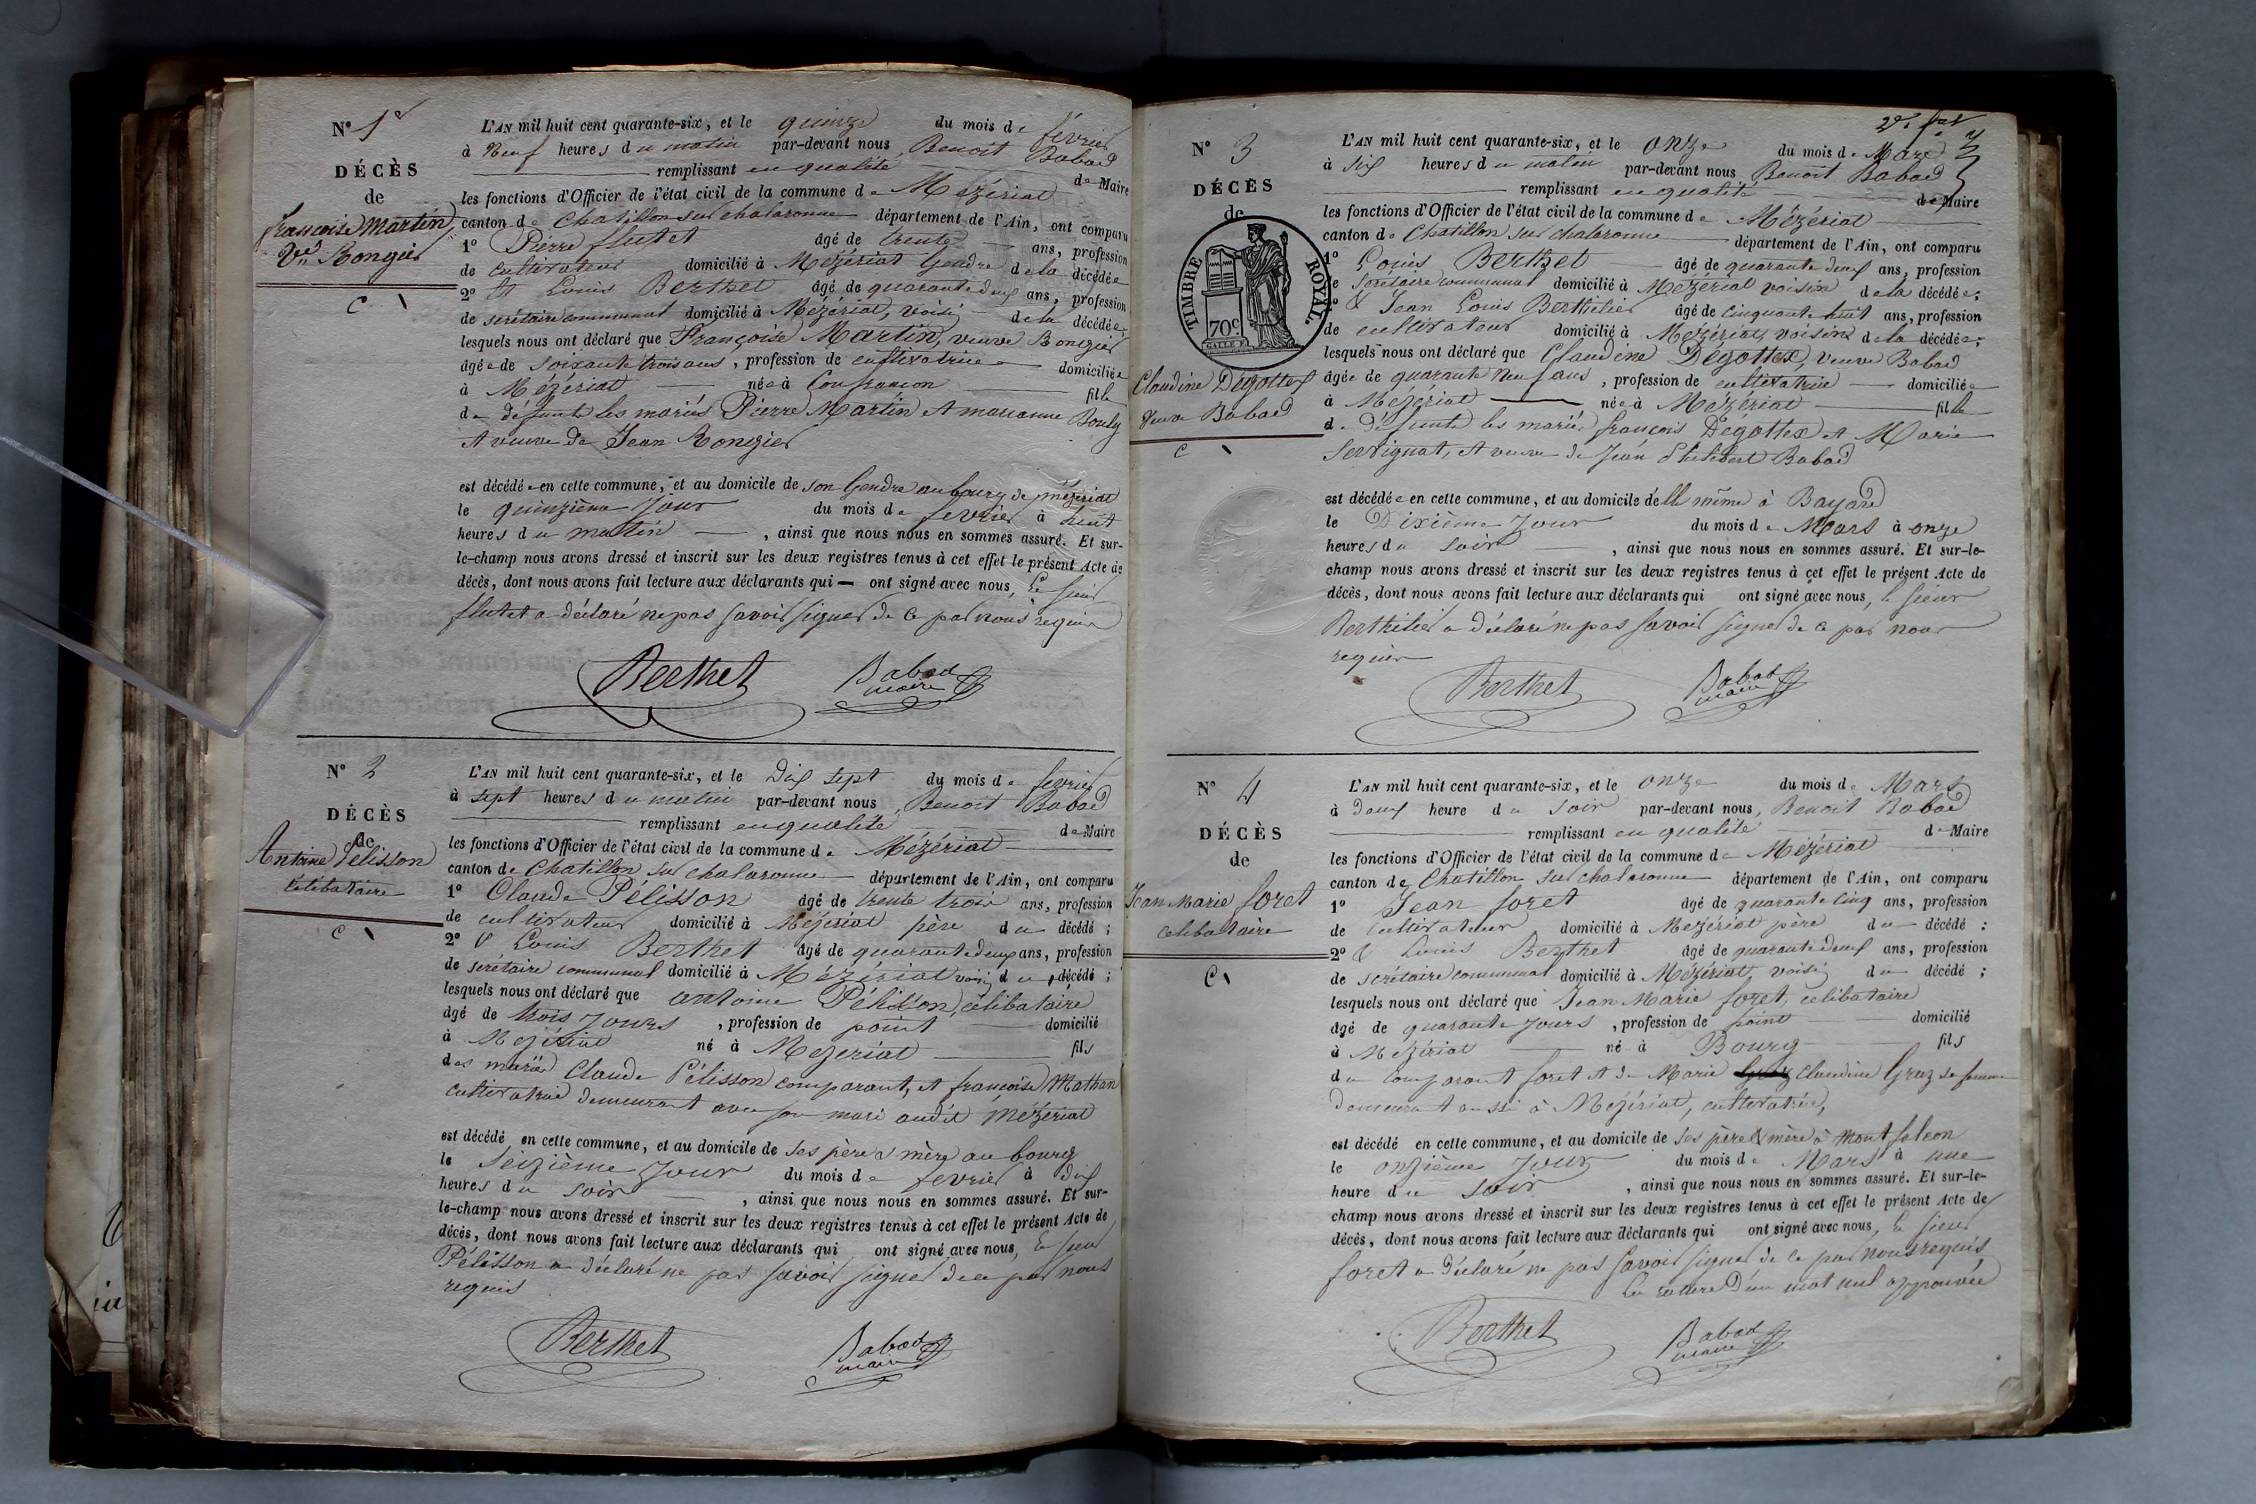 N° 1er
DÉCÈS
de
françoise Martin
Ve Rongier
C
L'AN mil huit cent quarante-six, et le quinze du mois de février
à Neuf heures du matin par-devant nous Benoit Babad
remplissant en qualité de Maire
les fonctions d'Officier de l'état civil de la commune de Mézériat
canton de Chatillon sur chalaronne département de l'Ain, ont comparu
1° Pierre flutet âgé de trente ans, profession
de cultivateur domicilié à Mézériat Gendre de la décédée
2° et Louis Berthet âgé de quarante deux ans, profession
de secrétaire communal domicilié à Mézériat, voisin de la décédée;
lesquels nous ont déclaré que Françoise Martin, veuve Rongier
âgée de soixante trois ans, profession de cultivatrice domiciliée
à Mézériat née à Confrançon fille
de défunts les mariés Pierre Martin et marianne Bouly
et veuve de Jean Rongier
est décédée en cette commune, et au domicile de son Gendre au bourg de mézériat
le quinzième Jour du mois de fevrier à huit
heures du matin , ainsi que nous nous en sommes assuré. Et sur-
le-champ nous avons dressé et inscrit sur les deux registres tenus à cet effet le présent Acte de
décès, dont nous avons fait lecture aux déclarants qui — ont signé avec nous, le sieur
flutet a déclaré ne pas savoir signer de ce par nous requis
Berthet Babad
maire
N° 2
DÉCÈS
de
Antoine Pélisson
célibataire
C
L'AN mil huit cent quarante-six, et le Dix sept du mois de fevrier
à sept heures du matin par-devant nous, Benoit Babad
remplissant en qualité de Maire
les fonctions d'Officier de l'état civil de la commune de Mézériat
canton de Chatillon sur chalaronne département de l'Ain, ont comparu
1° Claude Pélisson âgé de trente trois ans, profession
de cultivateur domicilié à Mézériat père du décédé ;
2° & Louis Berthet âgé de quarante deux ans, profession
de secrétaire communal domicilié à Mézériat voisin du décédé ;
lesquels nous ont déclaré que antoine Pélisson, célibataire
âgé de trois Jours , profession de point domicilié
à Mézériat né à Mezeriat fils
des mariés Claude Pélisson comparant, et françoise Mathan
cultivatrice demeurant avec son mari audit Mézériat
est décédé en cette commune, et au domicile de ses père & mère au bourg
le seizième Jour du mois de fevrier à dix
heures du soir , ainsi que nous nous en sommes assuré. Et sur-
le-champ nous avons dressé et inscrit sur les deux registres tenus à cet effet le présent Acte de
décès, dont nous avons fait lecture aux déclarants qui ont signé avec nous, le sieur
Pélisson a déclaré ne pas savoir signer de ce par nous
requis
Berthet Babad
maire
N° 3
DÉCÈS
de
TIMBRE ROYAL.
70c.
Claudine Dégottex
veuve Babad
C
L'AN mil huit cent quarante-six, et le onze du mois de Mars
à six heures du matin par-devant nous Benoit Babad
remplissant en qualité de Maire
les fonctions d'Officier de l'état civil de la commune de Mézériat
canton de Chatillon sur chalaronne département de l'Ain, ont comparu
1° Louis Berthet âgé de quarante deux ans, profession
de secrétaire communal domicilié à Mézériat voisin de la décédée;
2° & Jean Louis Berthelier âgé de cinquante huit ans, profession
de cultivateur domicilié à Mézériat, voisin de la décédée;
lesquels nous ont déclaré que Claudine Dégottex, veuve Babad
âgée de quarante Neuf ans , profession de cultivatrice domiciliée
à Mézériat née à Mézériat fille
de défunts les mariés françois Dégottex et Marie
Servignat, et veuve de Jean Philibert Babad
est décédée en cette commune, et au domicile d'elle même à Bayard
le Dixième Jour du mois de Mars à onze
heures du soir , ainsi que nous nous en sommes assuré. Et sur-le-
champ nous avons dressé et inscrit sur les deux registres tenus à cet effet le présent Acte de
décès, dont nous avons fait lecture aux déclarants qui ont signé avec nous, le sieur
Berthelier a déclaré ne pas savoir signer de ce par nous
requis
Berthet Babad
maire
N° 4
DÉCÈS
de
Jean Marie foret
célibataire
C
L'AN mil huit cent quarante-six, et le onze du mois de Mars
à deux heure du soir par-devant nous, Benoit Babad
remplissant en qualité de Maire
les fonctions d'Officier de l'état civil de la commune de Mézériat
canton de Chatillon sur chalaronne département de l'Ain, ont comparu
1° Jean foret âgé de quarante cinq ans, profession
de cultivateur domicilié à Mezériat père du décédé :
2° & Louis Berthet âgé de quarante deux ans, profession
de secrétaire communal domicilié à Mézériat, voisin du décédé ;
lesquels nous ont déclaré que Jean Marie foret, célibataire
âgé de quarante Jours , profession de point domicilié
à Mézériat né à Bourg fils
du comparant foret et de Marie Claudine Graz sa femme
demeurant aussi à Mézériat, cultivatrice,
est décédé en cette commune, et au domicile de ses père & mère à Montfalcon
le onzième Jour du mois de Mars à une
heure du soir , ainsi que nous nous en sommes assuré. Et sur-le-
champ nous avons dressé et inscrit sur les deux registres tenus à cet effet le présent Acte de
décès, dont nous avons fait lecture aux déclarants qui ont signé avec nous, le sieur
foret a déclaré ne pas savoir signer de ce par nous requis
la rature d'un mot nul approuvée
Berthet Babad
maire